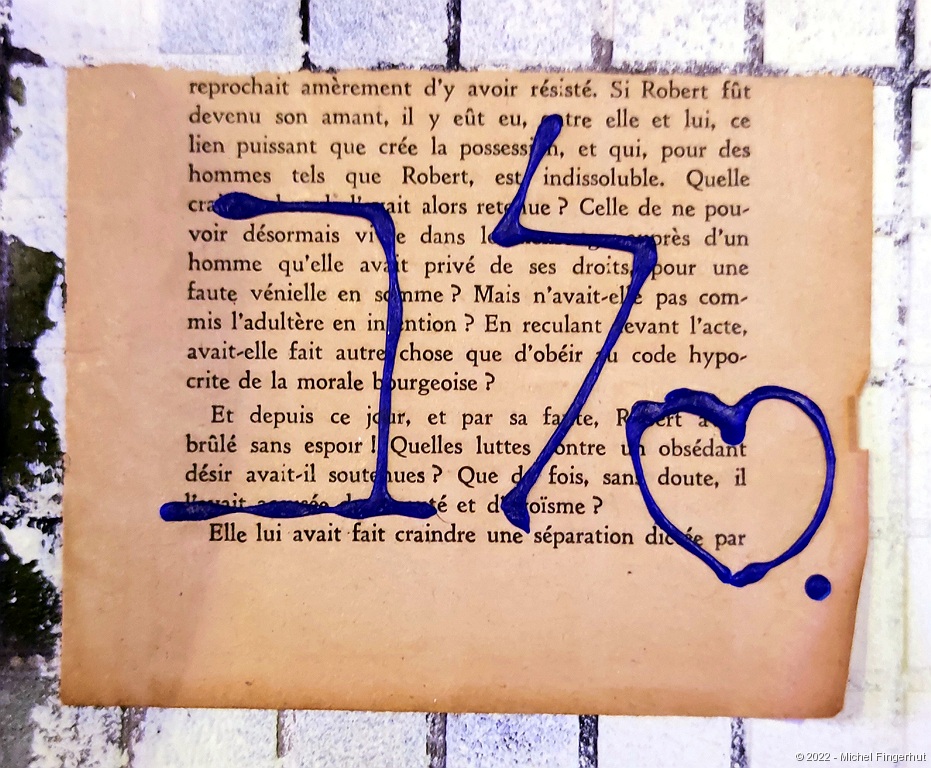 reprochait amèrement d'y avoir résisté. Si Robert fût
devenu son amant, il y eût eu, entre elle et lui, ce
lien puissant que crée la possession, et qui, pour des
hommes tels que Robert, est indissoluble. Quelle
l'avait alors retenue ? Celle de ne pou-
voir désormais vivre dans auprès d'un
homme qu'elle avait privé de ses droits, pour une
faute vénielle en somme ? Mais n'avait-elle pas com-
mis l'adultère en intention ? En reculant devant l'acte,
avait-elle fait autre chose que d'obéir au code hypo-
crite de la morale bourgeoise ?
Et depuis ce jour, et par sa faute, Robert
brûlé sans espoir ! Quelles luttes contre un obsédant
désir avait-il soutenues ? Que de fois, sans doute, il
l'avait accusée et d'héroïsme ?
Elle lui avait fait craindre une séparation dictée par
לב
© 2022 - Michel Fingerhut